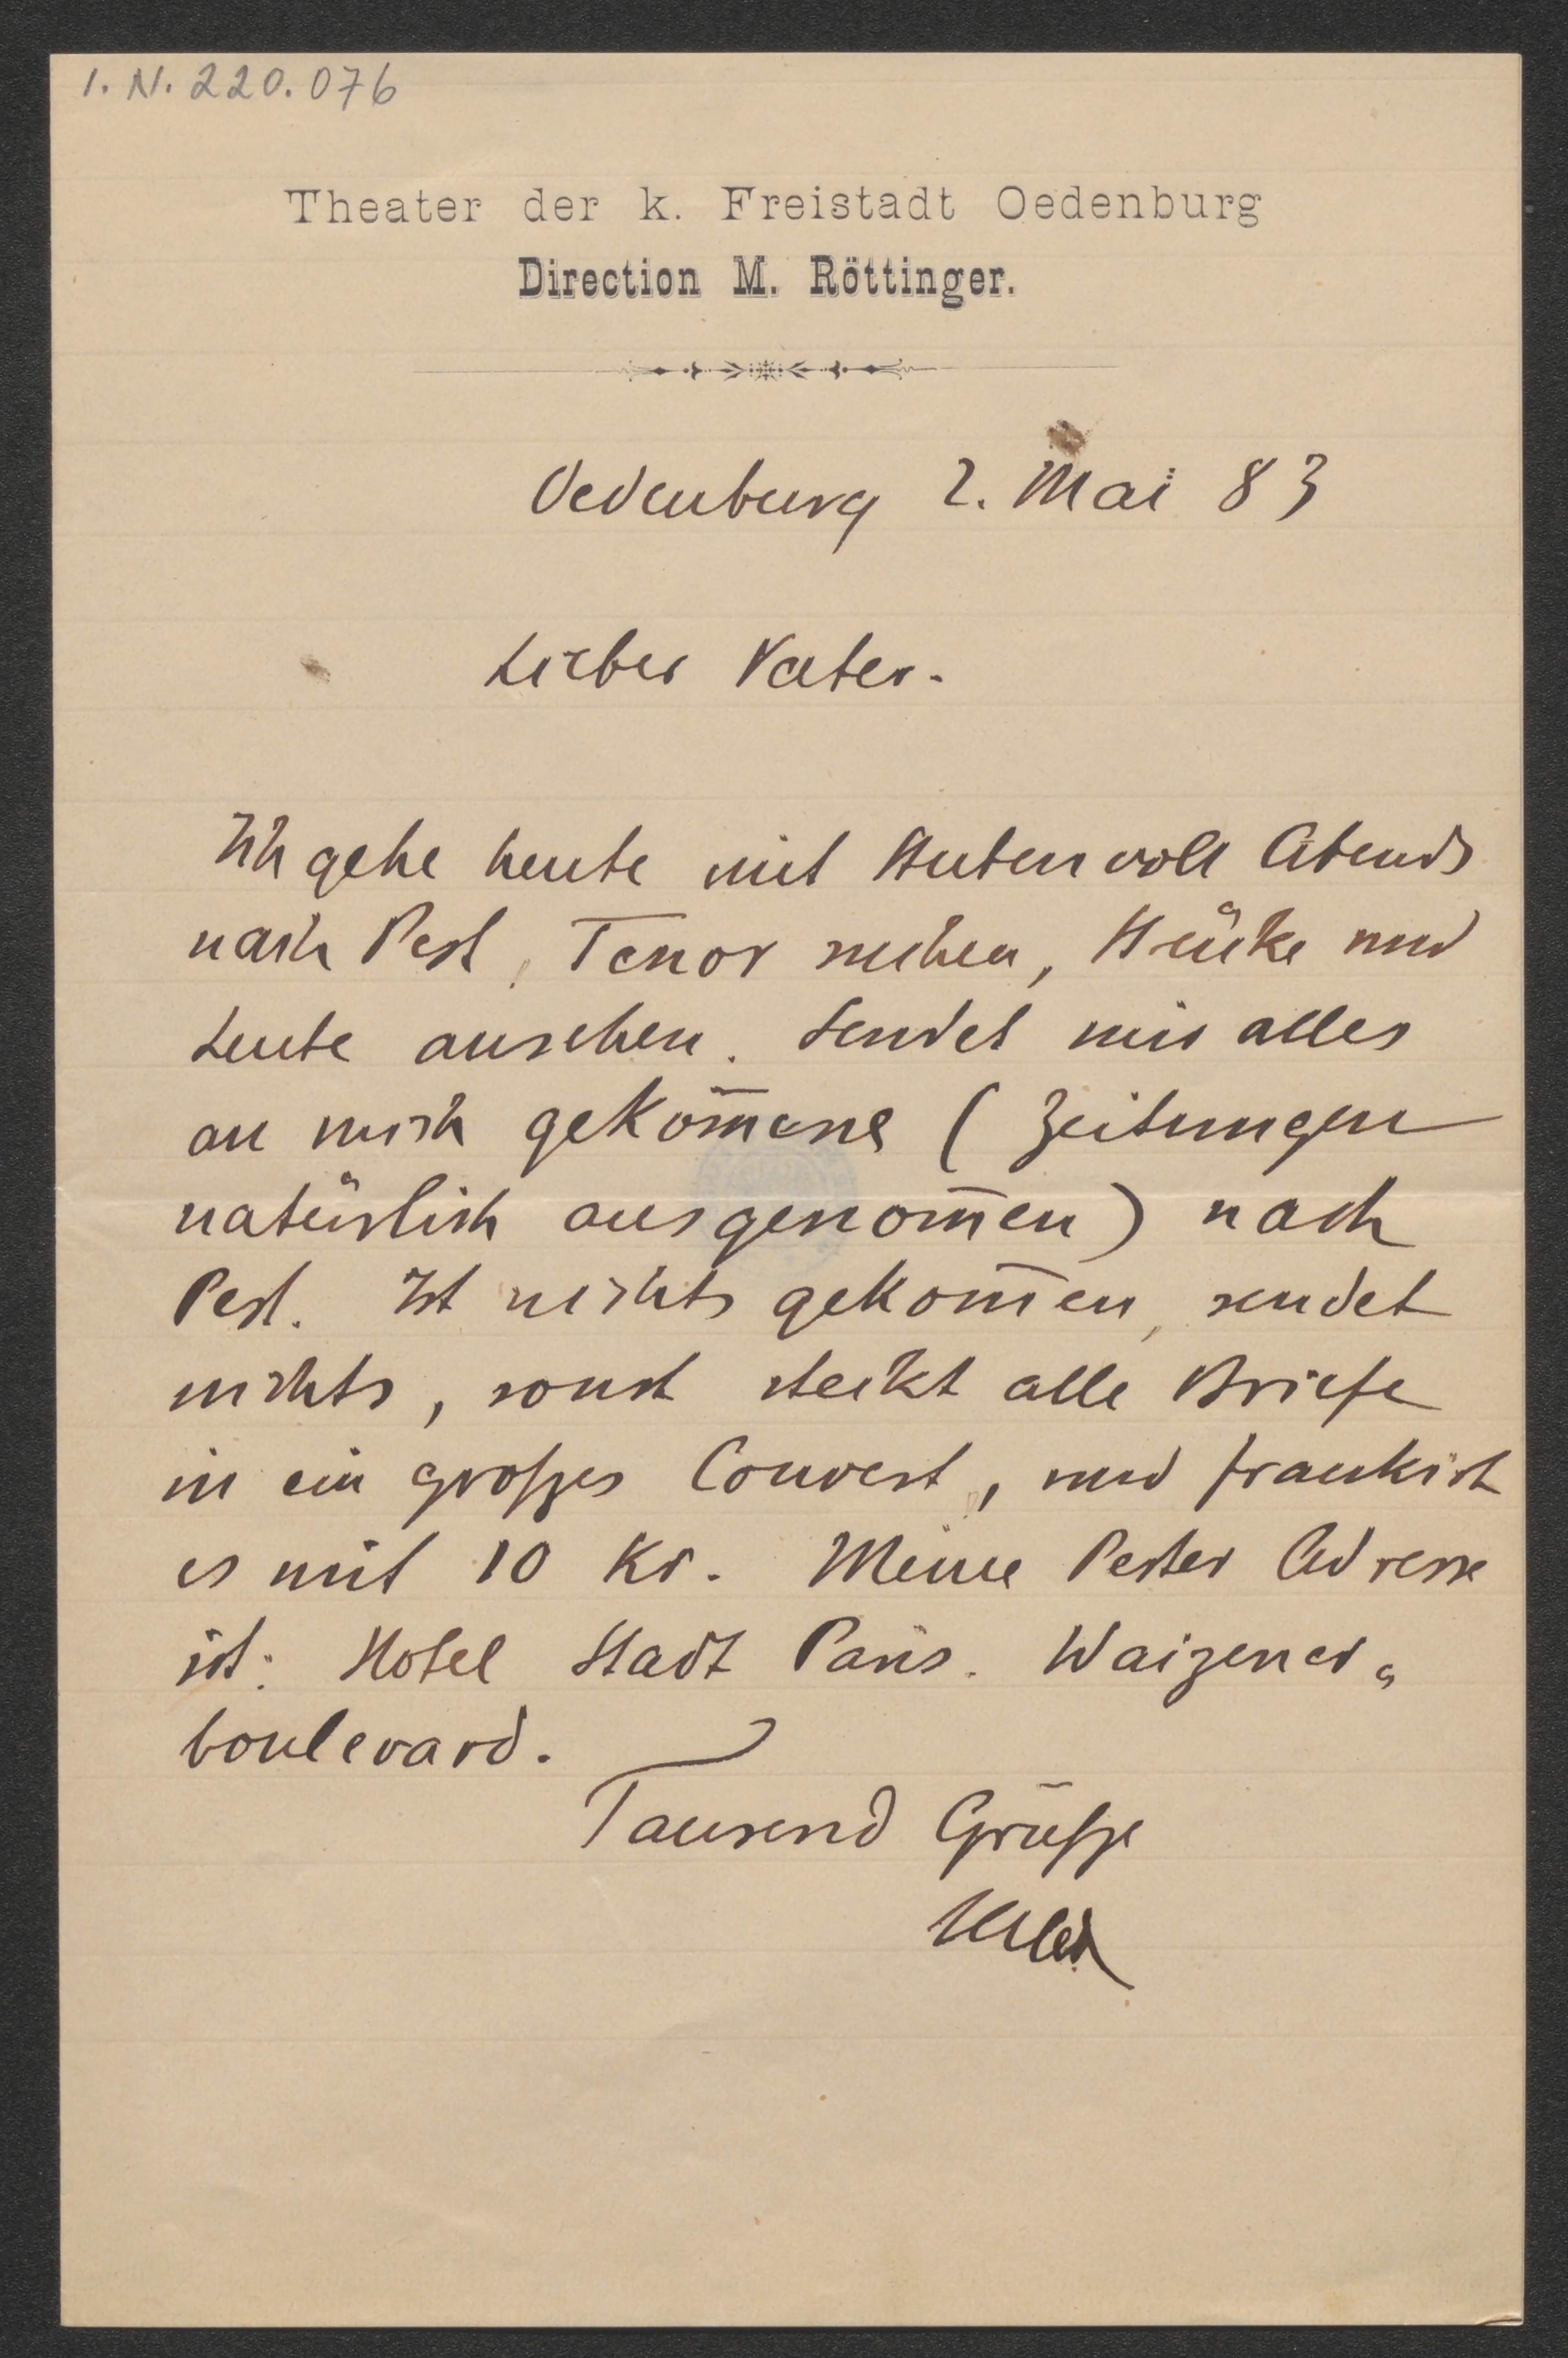 I. N. 220.076
Theater der k. Freistadt Oedenburg
Direction M. Röttinger.
Oedenburg 2. Mai 83
Lieber Vater.
Ich gehe heute mit Stubenvoll Abends
nach Pest, Tenor suchen, Stücke und
Leute ansehen. Sendet mir alles
an mich gekom̅ene (Zeitungen
natürlich ausgenom̅en) nach
Pest. Ist nichts gekom̅en, sendet
nichts, sonst steckt alle Briefe
in ein großes Couvert, und frankirt
es mit 10 Kr. Meine Pester Adresse
ist: Hotel Stadt Paris. Waizener-
boulevard.
Tausend Grüße